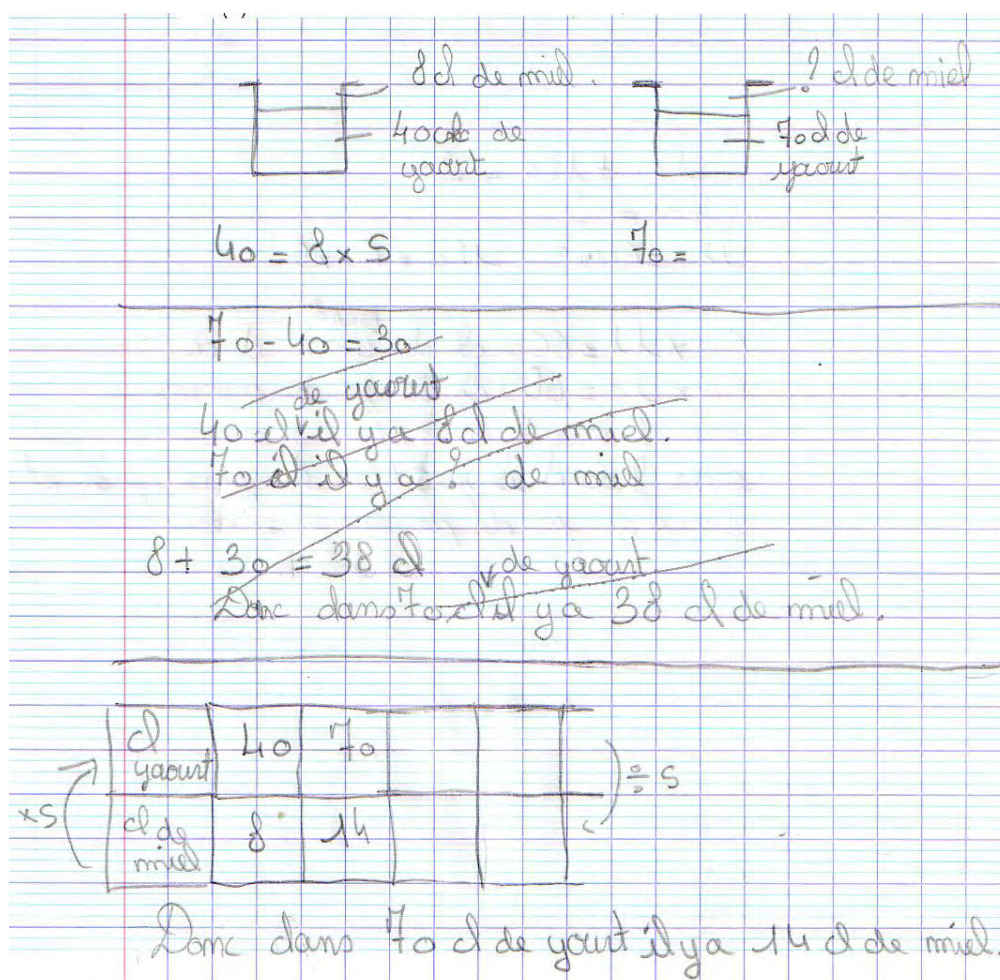 8cl de miel. ? cl de miel
40cl de yaourt 70cl de yaourt
40 = 8 x 5 70 =
70 - 40 = 30
de yaourt
40 cl il y a 8 cl de miel.
70 cl il y a ? de miel
8 + 30 = 38 cl de yaourt
Donc dans 70 cl il y a 38 cl de miel.
cl yaourt 40 70 ÷ 5
x5 cl de miel 8 14
Donc dans 70 cl de yourt il y a 14 cl de miel